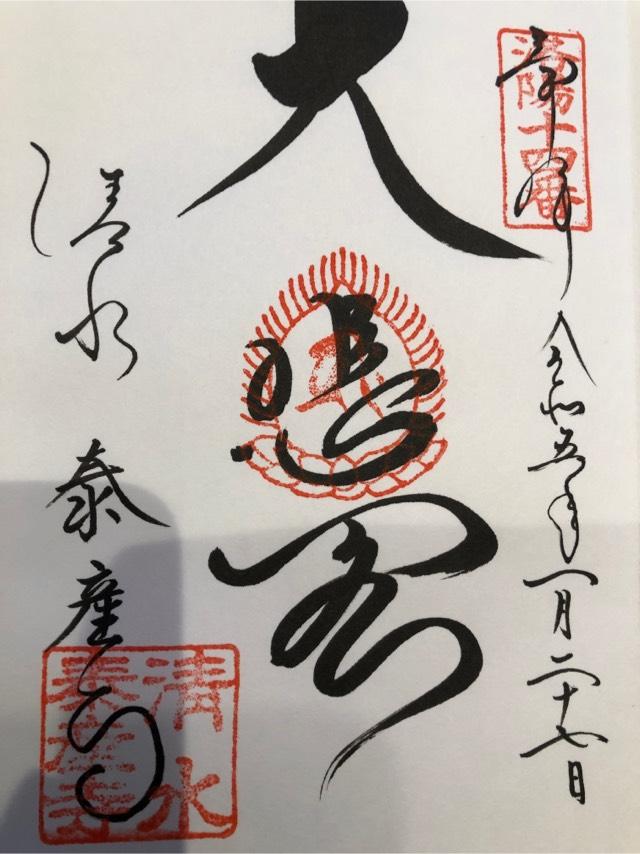 奉拝
洛陽十四番
令和五年一月二十七日
大悲閣
清水 泰産寺
清水
泰産寺